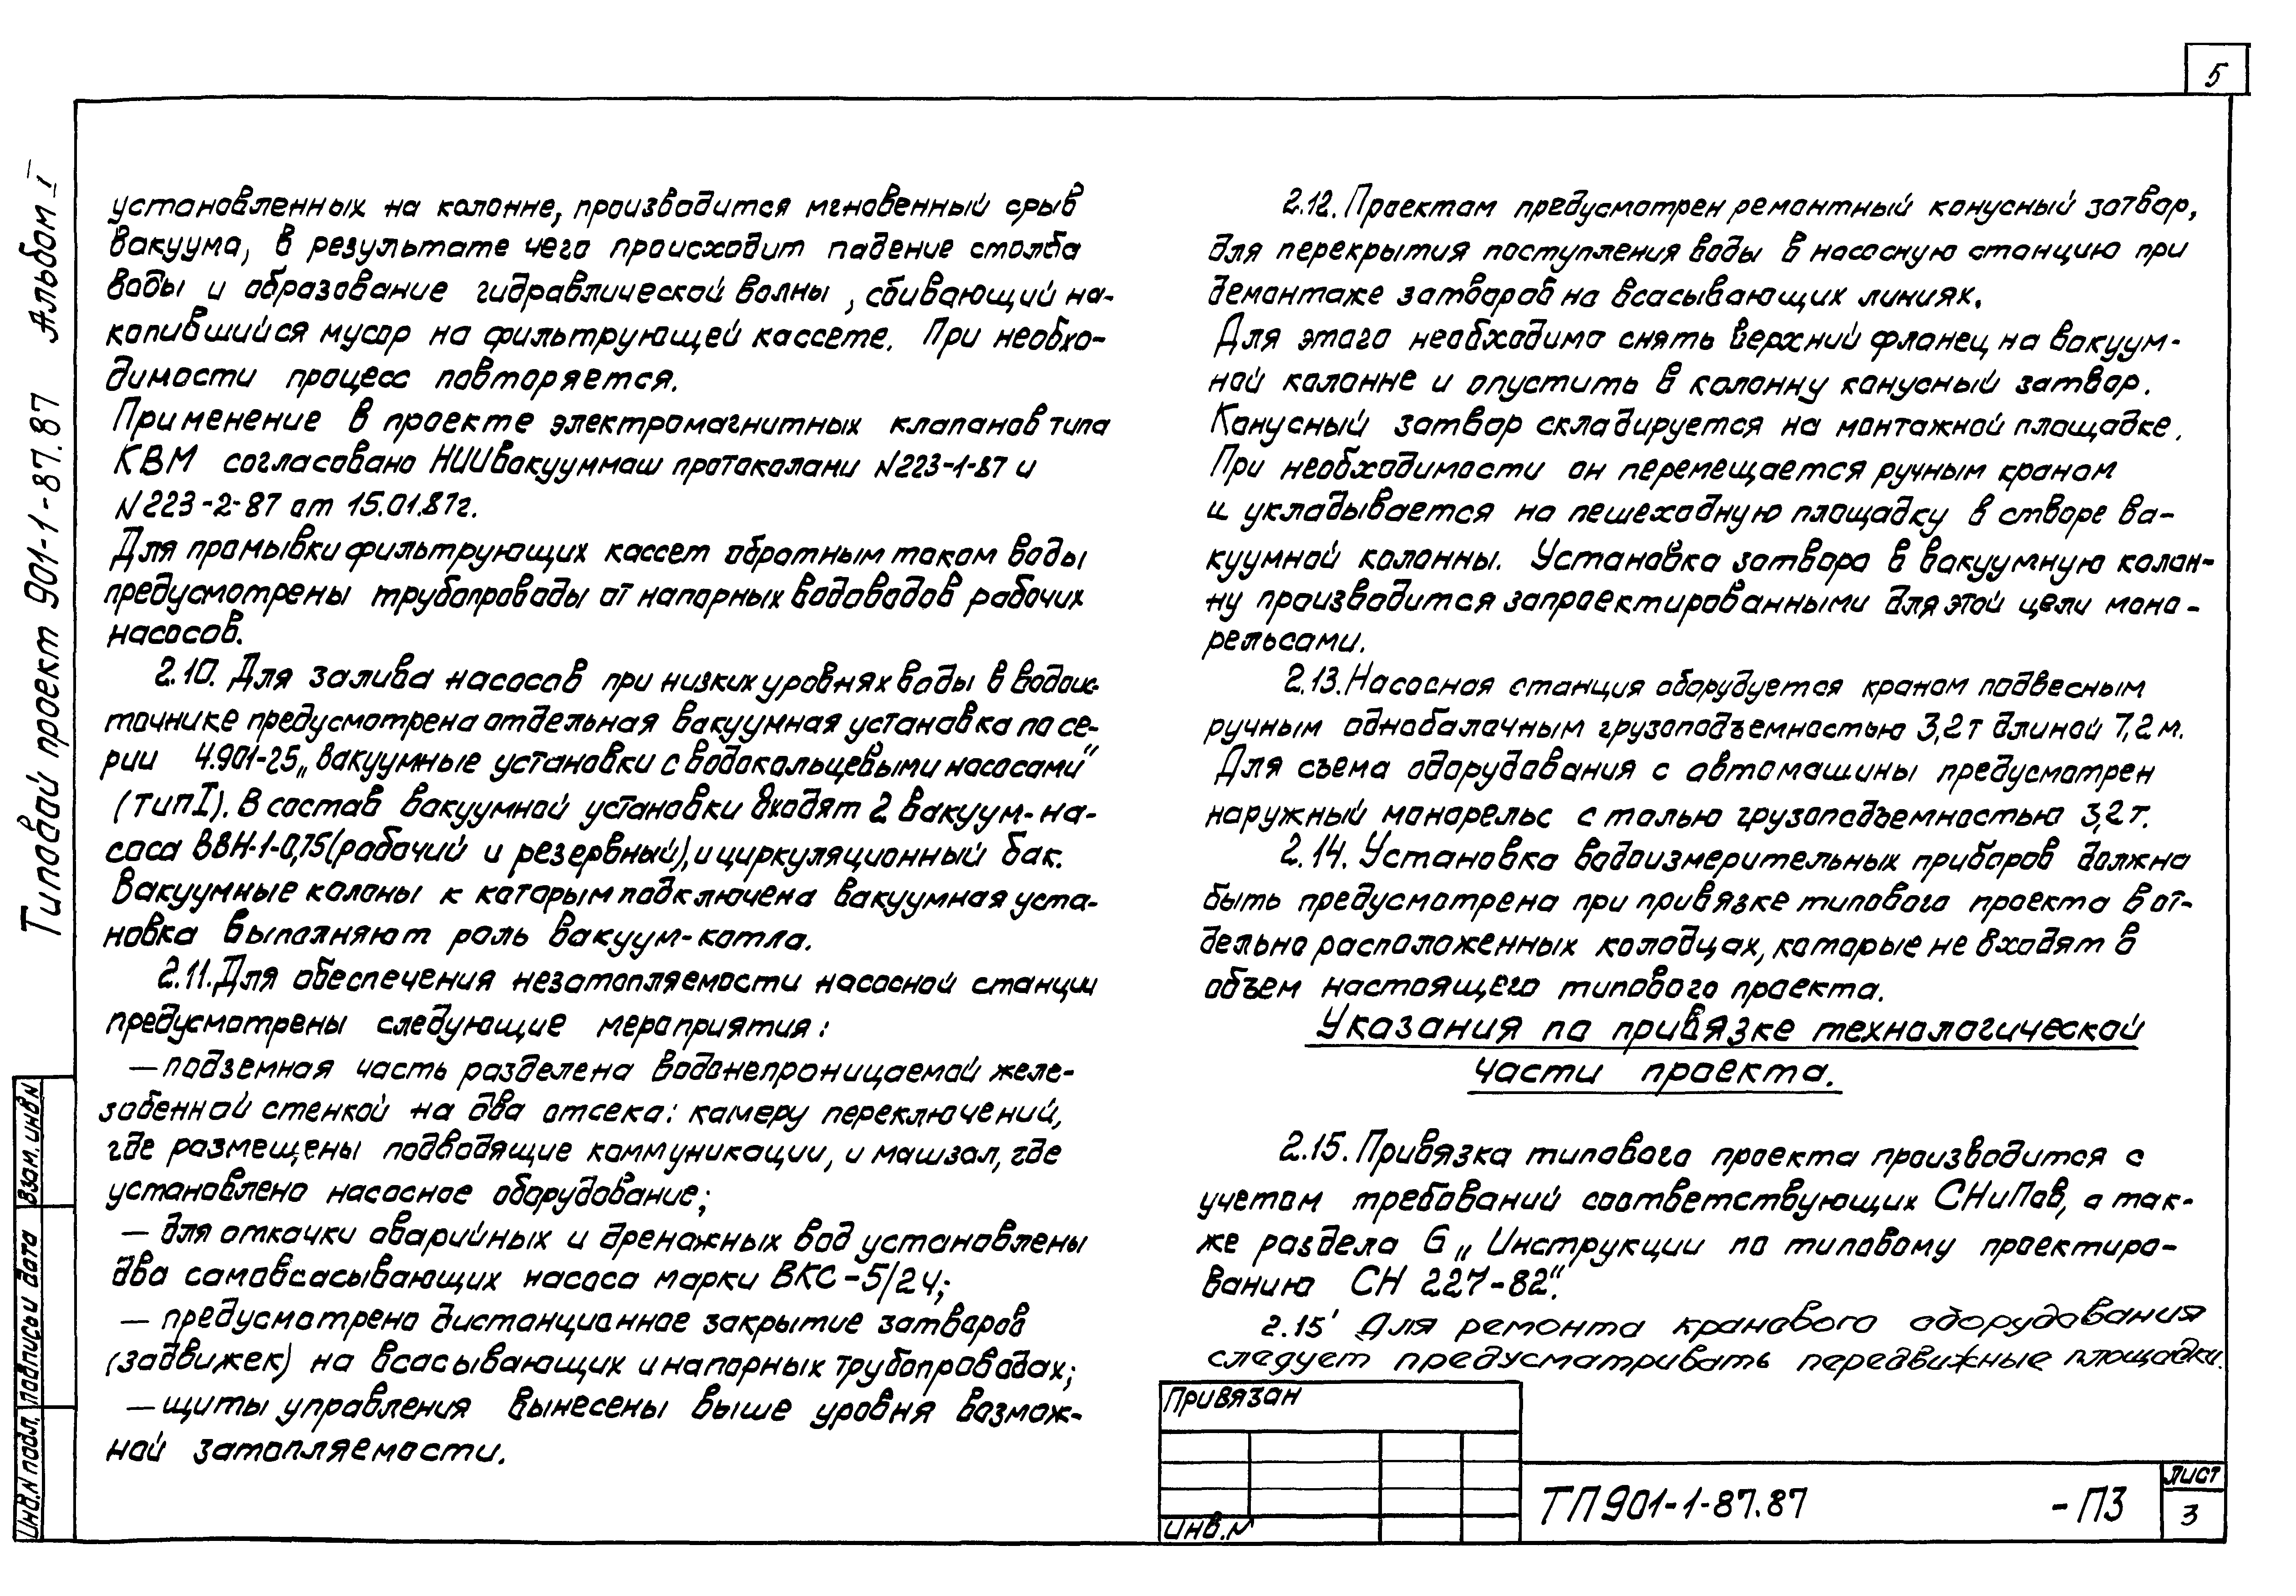 5
Типовой проект 901-1-87.87 Альбом I
установленных на колонне, производится мгновенный срыв
вакуума, в результате чего происходит падение столба
воды и образование гидравлической волны, сбивающий на-
копившийся мусор на фильтрующей кассете. При необхо-
димости процесс повторяется.
Применение в проекте электромагнитных клапанов типа
КВМ согласовано НИИвакууммаш протоколани N223-1-87 и
N223-2-87 от 15.01.87г.
Для промывки фильтрующих кассет обратным током воды
предусмотрены трубопроводы от напорных водоводов рабочих
насосов.
2.10. Для залива насосов при низких уровнях воды в водоис-
точнике предусмотрена отдельная вакуумная установка по се-
рии 4.901-25 „Вакуумные установки с водокольцевыми насосами"
(тип I). В состав вакуумной установки входят 2 вакуум-на-
соса ВВН-1-0,75 (рабочий и резервный), и циркуляционный бак.
Вакуумные колоны к которым подключена вакуумная уста-
новка выполняют роль вакуум-котла.
2.11. Для обеспечения незатопляемости насосной станции
предусмотрены следующие мероприятия:
— подземная часть разделена водонепроницаемой желе-
зобенной стенкой на два отсека: камеру переключений,
где размещены подводящие коммуникации, и машзал, где
установлено насосное оборудование;
— для откачки аварийных и дренажных вод установлены
два самовсасывающих насоса марки ВКС-5/24;
— предусмотрено дистанционное закрытие затворов
(задвижек) на всасывающих и напорных трубопроводах;
— щиты управления вынесены выше уровня возмож-
ной затопляемости.
2.12. Проектом предусмотрен ремонтный конусный затвор,
для перекрытия поступления воды в насосную станцию при
демонтаже затворов на всасывающих линиях.
Для этого необходимо снять верхний фланец на вакуум-
ной колонне и опустить в колонну конусный затвор.
Конусный затвор складируется на монтажной площадке.
При необходимости он перемещается ручным краном
и укладывается на пешеходную площадку в створе ва-
куумной колонны. Установка затвора в вакуумную колон-
ну производится запроектированными для этой цели моно-
рельсами.
2.13. Насосная станция оборудуется краном подвесным
ручным однобалочным грузоподъемностью 3,2т длиной 7,2м.
Для съема одорудования с автомашины предусмотрен
наружный монорельс с толью грузоподъемностью 3,2т.
2.14. Установка водоизмерительных приборов должна
быть предусмотрена при привязке типового проекта в от-
дельно расположенных колодцах, которые не входят в
объем настоящего типового проекта.
Указания по привязке технологической
части проекта.
2.15. Привязка типового проекта производится с
учетом требований соответствующих СНиПов, а так-
же раздела 6 „Инструкции по типовому проектиро-
ванию СН 227-82".
2.15' Для ремонта кранового оборудования
следует предусматривать передвижные площадки.
Привязан
Инв.N
ТП 901-1-87.87 -ПЗ
Лист
3
Инв.N подл. Подпись и дата Взам. инв.N